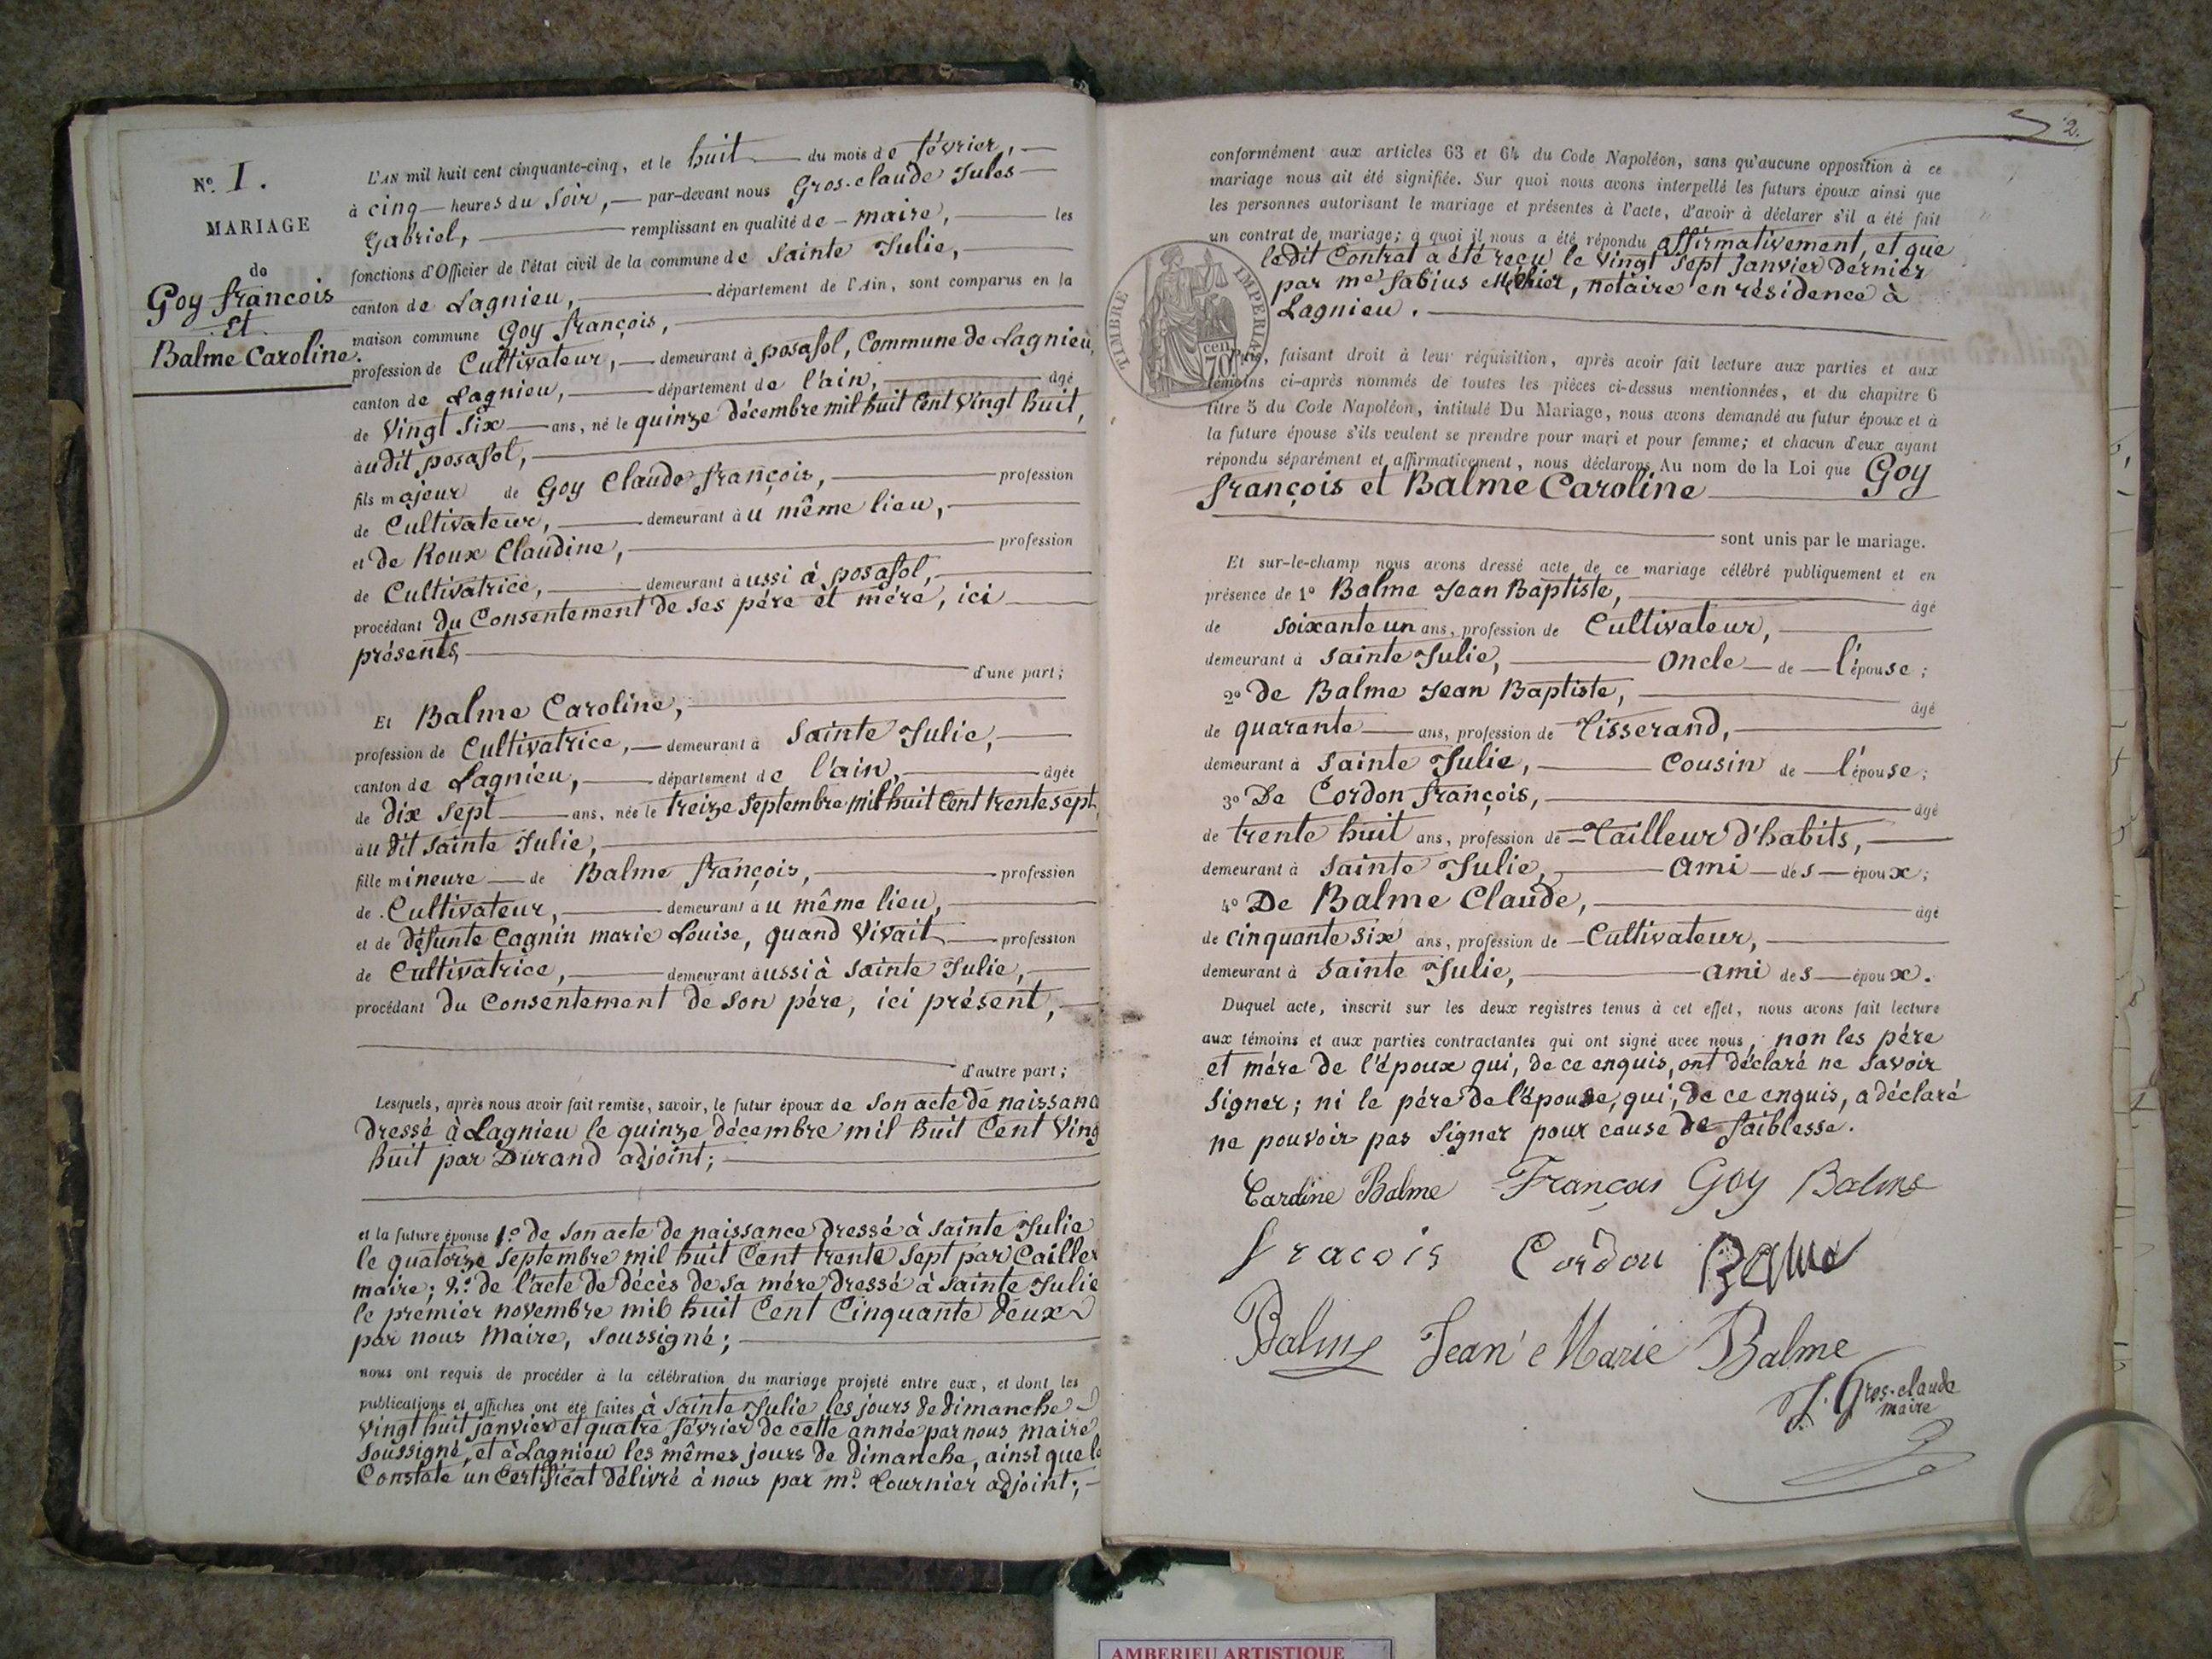 N.º I.
MARIAGE
de
Goy françois
Et
Balme Caroline.
L'AN mil huit cent cinquante-cinq, et le huit du mois de février,
à cinq heures du Soir, par-devant nous Gros-claude Jules
Gabriel, remplissant en qualité de maire, les
fonctions d'Officier de l'état civil de la commune de Sainte Julie,
canton de Lagnieu, département de l'Ain, sont comparus en la
maison commune Goy françois,
profession de Cultivateur, demeurant à posafol, Commune de Lagnieu,
canton de Lagnieu, département de l'ain, âgé
de Vingt Six ans, né le quinze décembre mil huit Cent Vingt huit,
audit posafol,
fils majeur de Goy Claude françois, profession
de Cultivateur, demeurant au même lieu,
et de Roux Claudine, profession
de Cultivatrice, demeurant aussi à posafol,
procédant du Consentement de ses père et mère, ici
présents, d'une part;
Et Balme Caroline,
profession de Cultivatrice, demeurant à Sainte Julie,
canton de Lagnieu, département de l'ain, âgée
de dix sept ans, née le treize Septembre mil huit Cent trente sept
au dit Sainte Julie,
fille mineure de Balme françois, profession
de Cultivateur, demeurant au même lieu,
et de défunte Cagnin marie Louise, quand Vivait profession
de Cultivatrice, demeurant aussi à Sainte Julie,
procédant du Consentement de son père, ici présent,
d'autre part;
Lesquels, après nous avoir fait remise, savoir, le futur époux de Son acte de naissanc
dressé à Lagnieu le quinze décembre mil huit Cent Ving
huit par Durand adjoint;
et la future épouse 1.º de Son acte de naissance dressé à Sainte Julie
le quatorze Septembre mil huit Cent trente Sept par Cailler
maire; 2.º de l'acte de décès de sa mère dressé à Sainte Julie
le premier novembre mil huit Cent Cinquante deux
par nous Maire, Soussigné;
nous ont requis de procéder à la célébration du mariage projeté entre eux, et dont les
publications et affiches ont été faites à Sainte Julie les jours de dimanche
Vingt huit janvier et quatre février de cette année par nous maire
Soussigné, et à Lagnieu les mêmes jours de dimanche, ainsi que le
Constate un Certificat délivré à nous par m.r adjoint;
2.
conformément aux articles 63 et 64 du Code Napoléon, sans qu'aucune opposition à ce
mariage nous ait été signifiée. Sur quoi nous avons interpellé les futurs époux ainsi que
les personnes autorisant le mariage et présentes à l'acte, d'avoir à déclarer s'il a été fait
un contrat de mariage; à quoi il nous a été répondu affirmativement, et que
ledit Contrat a été reçu le Vingt Sept Janvier dernier
par me fabius, notaire en résidence à
Lagnieu.
TIMBRE IMPERIAL
70 cen
Puis, faisant droit à leur réquisition, après avoir fait lecture aux parties et aux
témoins ci-après nommés de toutes les pièces ci-dessus mentionnées, et du chapitre 6
titre 5 du Code Napoléon, intitulé Du Mariage, nous avons demandé au futur époux et à
la future épouse s'ils veulent se prendre pour mari et pour femme; et chacun d'eux ayant
répondu séparément et affirmativement, nous déclarons Au nom de la Loi que Goy
françois et Balme Caroline
sont unis par le mariage.
Et sur-le-champ nous avons dressé acte de ce mariage célébré publiquement et en
présence de 1º Balme Jean Baptiste, âgé
de soixante un ans, profession de Cultivateur,
demeurant à Sainte Julie, Oncle de l'épouse;
2º de Balme Jean Baptiste, âgé
de quarante ans, profession de Tisserand,
demeurant à Sainte Julie, Cousin de l'épouse;
3º De Cordon françois, âgé
de trente huit ans, profession de Tailleur d'habits,
demeurant à Sainte Julie, Ami des époux;
4º De Balme Claude, âgé
de cinquante six ans, profession de Cultivateur,
demeurant à Sainte Julie, ami des époux.
Duquel acte, inscrit sur les deux registres tenus à cet effet, nous avons fait lecture
aux témoins et aux parties contractantes qui ont signé avec nous, non les père
et mère de l'époux qui, de ce enquis, ont déclaré ne Savoir
Signer; ni le père de l'épouse, qui, de ce enquis, a déclaré
ne pouvoir pas Signer pour cause de faiblesse.
Caroline Balme François Goy Balme
fracois Cordon Balme
Balme Jean Marie Balme
J. Gros-claude
maire
AMBERIEU ARTISTIQUE